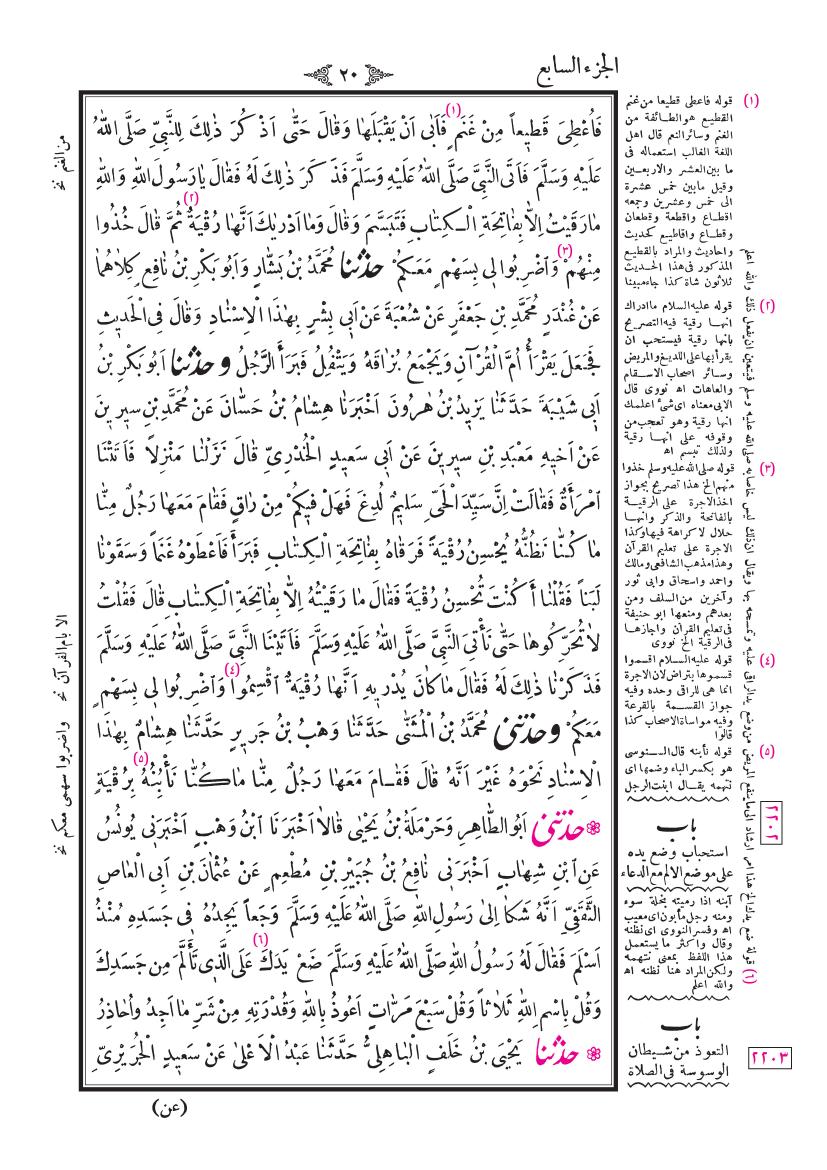 الجزء السابع
٢٠
فَأُعْطِيَ قَطِيعاً مِنْ غَنَمٍ (١) فَاَبٰى اَنْ يَقْبَلَهَا وَقَالَ حَتّٰى اَذْكُرَ ذٰلِكَ لِلنَّبِيِّ صَلَّى اللهُ
عَلَيْهِ وَسَلَّمَ فَاَتَى النَّبِيَّ صَلَّى اللهُ عَلَيْهِ وَسَلَّمَ فَذَكَرَ ذٰلِكَ لَهُ فَقَالَ يَارَسُولَ اللهِ وَاللهِ
مَارَقَيْتُ اِلَّا بِفَاتِحَةِ الْكِتَابِ فَتَبَسَّمَ وَقَالَ وَمَا اَدْرٰيكَ (٢) اَنَّهَا رُقْيَةٌ ثُمَّ قَالَ خُذُوا
مِنْهُمْ (٣) وَاضْرِبُوا لِي بِسَهْمٍ مَعَكُمْ حدثنا مُحَمَّدُ بْنُ بَشَّارٍ وَاَبُو بَكْرِ بْنُ نَافِعٍ كِلَاهُمَا
عَنْ غُنْدَرٍ مُحَمَّدِ بْنِ جَعْفَرٍ عَنْ شُعْبَةَ عَنْ اَبِي بِشْرٍ بِهٰذَا الْاِسْنَادِ وَقَالَ فِي الْحَدِيثِ
فَجَعَلَ يَقْرَأُ اُمَّ الْقُرْآنِ وَيَجْمَعُ بُزَاقَهُ وَيَتْفُلُ فَبَرَأَ الرَّجُلُ وحدثنا اَبُو بَكْرِ بْنُ
اَبِي شَيْبَةَ حَدَّثَنَا يَزِيدُ بْنُ هٰرُونَ اَخْبَرَنَا هِشَامُ بْنُ حَسَّانَ عَنْ مُحَمَّدِ بْنِ سِيرِينَ
عَنْ اَخِيهِ مَعْبَدِ بْنِ سِيرِينَ عَنْ اَبِي سَعِيدٍ الْخُدْرِيِّ قَالَ نَزَلْنَا مَنْزِلاً فَاَتَتْنَا
امْرَأَةٌ فَقَالَتْ اِنَّ سَيِّدَ الْحَيِّ سَلِيمٌ لُدِغَ فَهَلْ فِيكُمْ مِنْ رَاقٍ فَقَامَ مَعَهَا رَجُلٌ مِنَّا
مَا كُنَّا نَظُنُّهُ يُحْسِنُ رُقْيَةً فَرَقَاهُ بِفَاتِحَةِ الْكِتَابِ فَبَرَأَ فَاَعْطَوْهُ غَنَماً وَسَقَوْنَا
لَبَناً فَقُلْنَا أَكُنْتَ تُحْسِنُ رُقْيَةً فَقَالَ مَا رَقَيْتُهُ اِلَّا بِفَاتِحَةِ الْكِتَابِ قَالَ فَقُلْتُ
لَا تُحَرِّكُوهَا حَتّٰى نَأْتِيَ النَّبِيَّ صَلَّى اللهُ عَلَيْهِ وَسَلَّمَ فَاَتَيْنَا النَّبِيَّ صَلَّى اللهُ عَلَيْهِ وَسَلَّمَ
فَذَكَرْنَا ذٰلِكَ لَهُ فَقَالَ مَا كَانَ يُدْرِيهِ اَنَّهَا رُقْيَةٌ اقْسِمُوا (٤) وَاضْرِبُوا لِي بِسَهْمٍ
مَعَكُمْ وحدثنى مُحَمَّدُ بْنُ الْمُثَنَّى حَدَّثَنَا وَهْبُ بْنُ جَرِيرٍ حَدَّثَنَا هِشَامٌ بِهٰذَا
الْاِسْنَادِ نَحْوَهُ غَيْرَ اَنَّهُ قَالَ فَقَامَ مَعَهَا رَجُلٌ مِنَّا مَا كُنَّا نَأْبُنُهُ (٥) بِرُقْيَةٍ
حدثنى اَبُو الطَّاهِرِ وَحَرْمَلَةُ بْنُ يَحْيٰى قَالَا اَخْبَرَنَا ابْنُ وَهْبٍ اَخْبَرَنِي يُونُسُ
عَنِ ابْنِ شِهَابٍ اَخْبَرَنِي نَافِعُ بْنُ جُبَيْرِ بْنِ مُطْعِمٍ عَنْ عُثْمَانَ بْنِ اَبِي الْعَاصِ
الثَّقَفِيِّ اَنَّهُ شَكَا اِلَى رَسُولِ اللهِ صَلَّى اللهُ عَلَيْهِ وَسَلَّمَ وَجَعاً يَجِدُهُ فِي جَسَدِهِ مُنْذُ
اَسْلَمَ فَقَالَ لَهُ رَسُولُ اللهِ صَلَّى اللهُ عَلَيْهِ وَسَلَّمَ ضَعْ يَدَكَ (٦) عَلَى الَّذِي تَأَلَّمَ مِنْ جَسَدِكَ
وَقُلْ بِاسْمِ اللهِ ثَلَاثاً وَقُلْ سَبْعَ مَرَّاتٍ اَعُوذُ بِاللهِ وَقُدْرَتِهِ مِنْ شَرِّ مَا اَجِدُ وَاُحَاذِرُ
حدثنا يَحْيَى بْنُ خَلَفٍ الْبَاهِلِيُّ حَدَّثَنَا عَبْدُ الْاَعْلٰى عَنْ سَعِيدٍ الْجُرَيْرِيِّ
(عن)
(١) قوله فاعطى قطيعا من غنم
القطيع هو الطائفة من
الغنم وسائر النعم قال اهل
اللغة الغالب استعماله فى
ما بين العشر والاربعين
وقيل مابين خمس عشرة
الى خمس وعشرين وجمعه
اقطاع واقطعة وقطعان
وقطاع واقاطيع كحديث
واحاديث والمراد بالقطيع
المذكور فى هذا الحديث
ثلاثون شاة كذا جاء مبينا
(٢) قوله عليه السلام ما ادراك
انها رقية فيه التصريح
بانها رقية فيستحب ان
يقرأ بها على اللديغ والمريض
وسائر اصحاب الاسقام
والعاهات اه نووى قال
الابى معناه اى شئ اعلمك
انها رقية وهو تعجب من
وقوفه على انها رقية
ولذلك تبسم اه
(٣) قوله صلى الله عليه وسلم خذوا
منهم الخ هذا تصريح بجواز
اخذ الاجرة على الرقية
بالفاتحة والذكر وانها
حلال لاكراهة فيها وكذا
الاجرة على تعليم القرآن
وهذا مذهب الشافعى ومالك
واحمد واسحاق وابى ثور
وآخرين من السلف ومن
بعدهم ومنعها ابو حنيفة
فى تعليم القرآن واجازها
فى الرقية الخ نووى
(٤) قوله عليه السلام اقسموا
قسموها بتراض لان الاجرة
انما هى للراقى وحده وفيه
جواز القسمة بالقرعة
وفيه مواساة الاصحاب كذا
قالوا
(٥) قوله نأبنه قال السنوسى
هو بكسر الباء وضمها اى
نتهمه يقال ابنت الرجل
٢٢٠٢
باب
استحباب وضع يده
على موضع الالم مع الدعاء
آبنه اذا رميته بخلة سوء
ومنه رجل مأبون اى معيب
اه وفسر النووى اى نظنه
وقال واكثر ما يستعمل
هذا اللفظ بمعنى نتهمه
ولكن المراد هنا نظنه اه
والله اعلم
باب
٢٢٠٣
التعوذ من شيطان
الوسوسة فى الصلاة
(٦) قوله ضع يدك الخ هذا امر ارشاد الى ما ينفع المريض من وضع يد الراقى عليه وتمسحه بها
من الغنم نخ
الا بام القرآن نخ
واضربوا سهمى معكم نخ